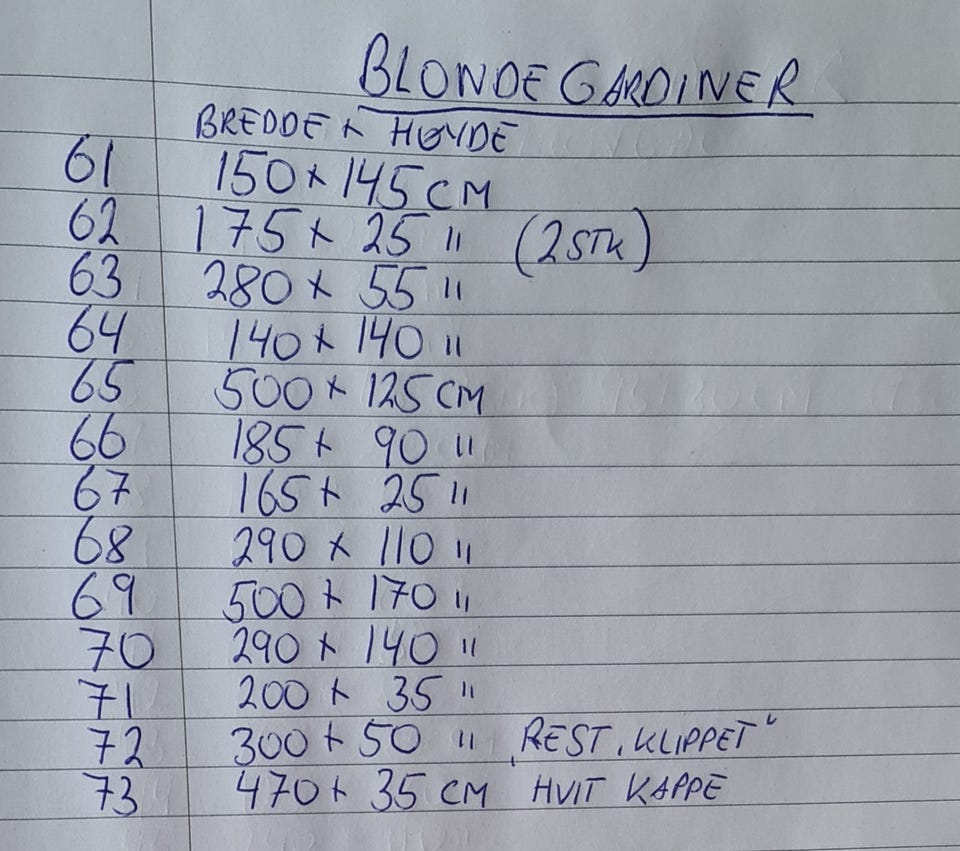 BLONDEGARDINER
BREDDE x HØYDE
61 150 x 145 CM
62 175 x 25 " (2 STK)
63 280 x 55 "
64 140 x 140 "
65 500 x 125 CM
66 185 x 90 "
67 165 x 25 "
68 290 x 110 "
69 500 x 170 "
70 290 x 140 "
71 200 x 35 "
72 300 x 50 " „REST. KLIPPET"
73 470 x 35 CM HVIT KAPPE